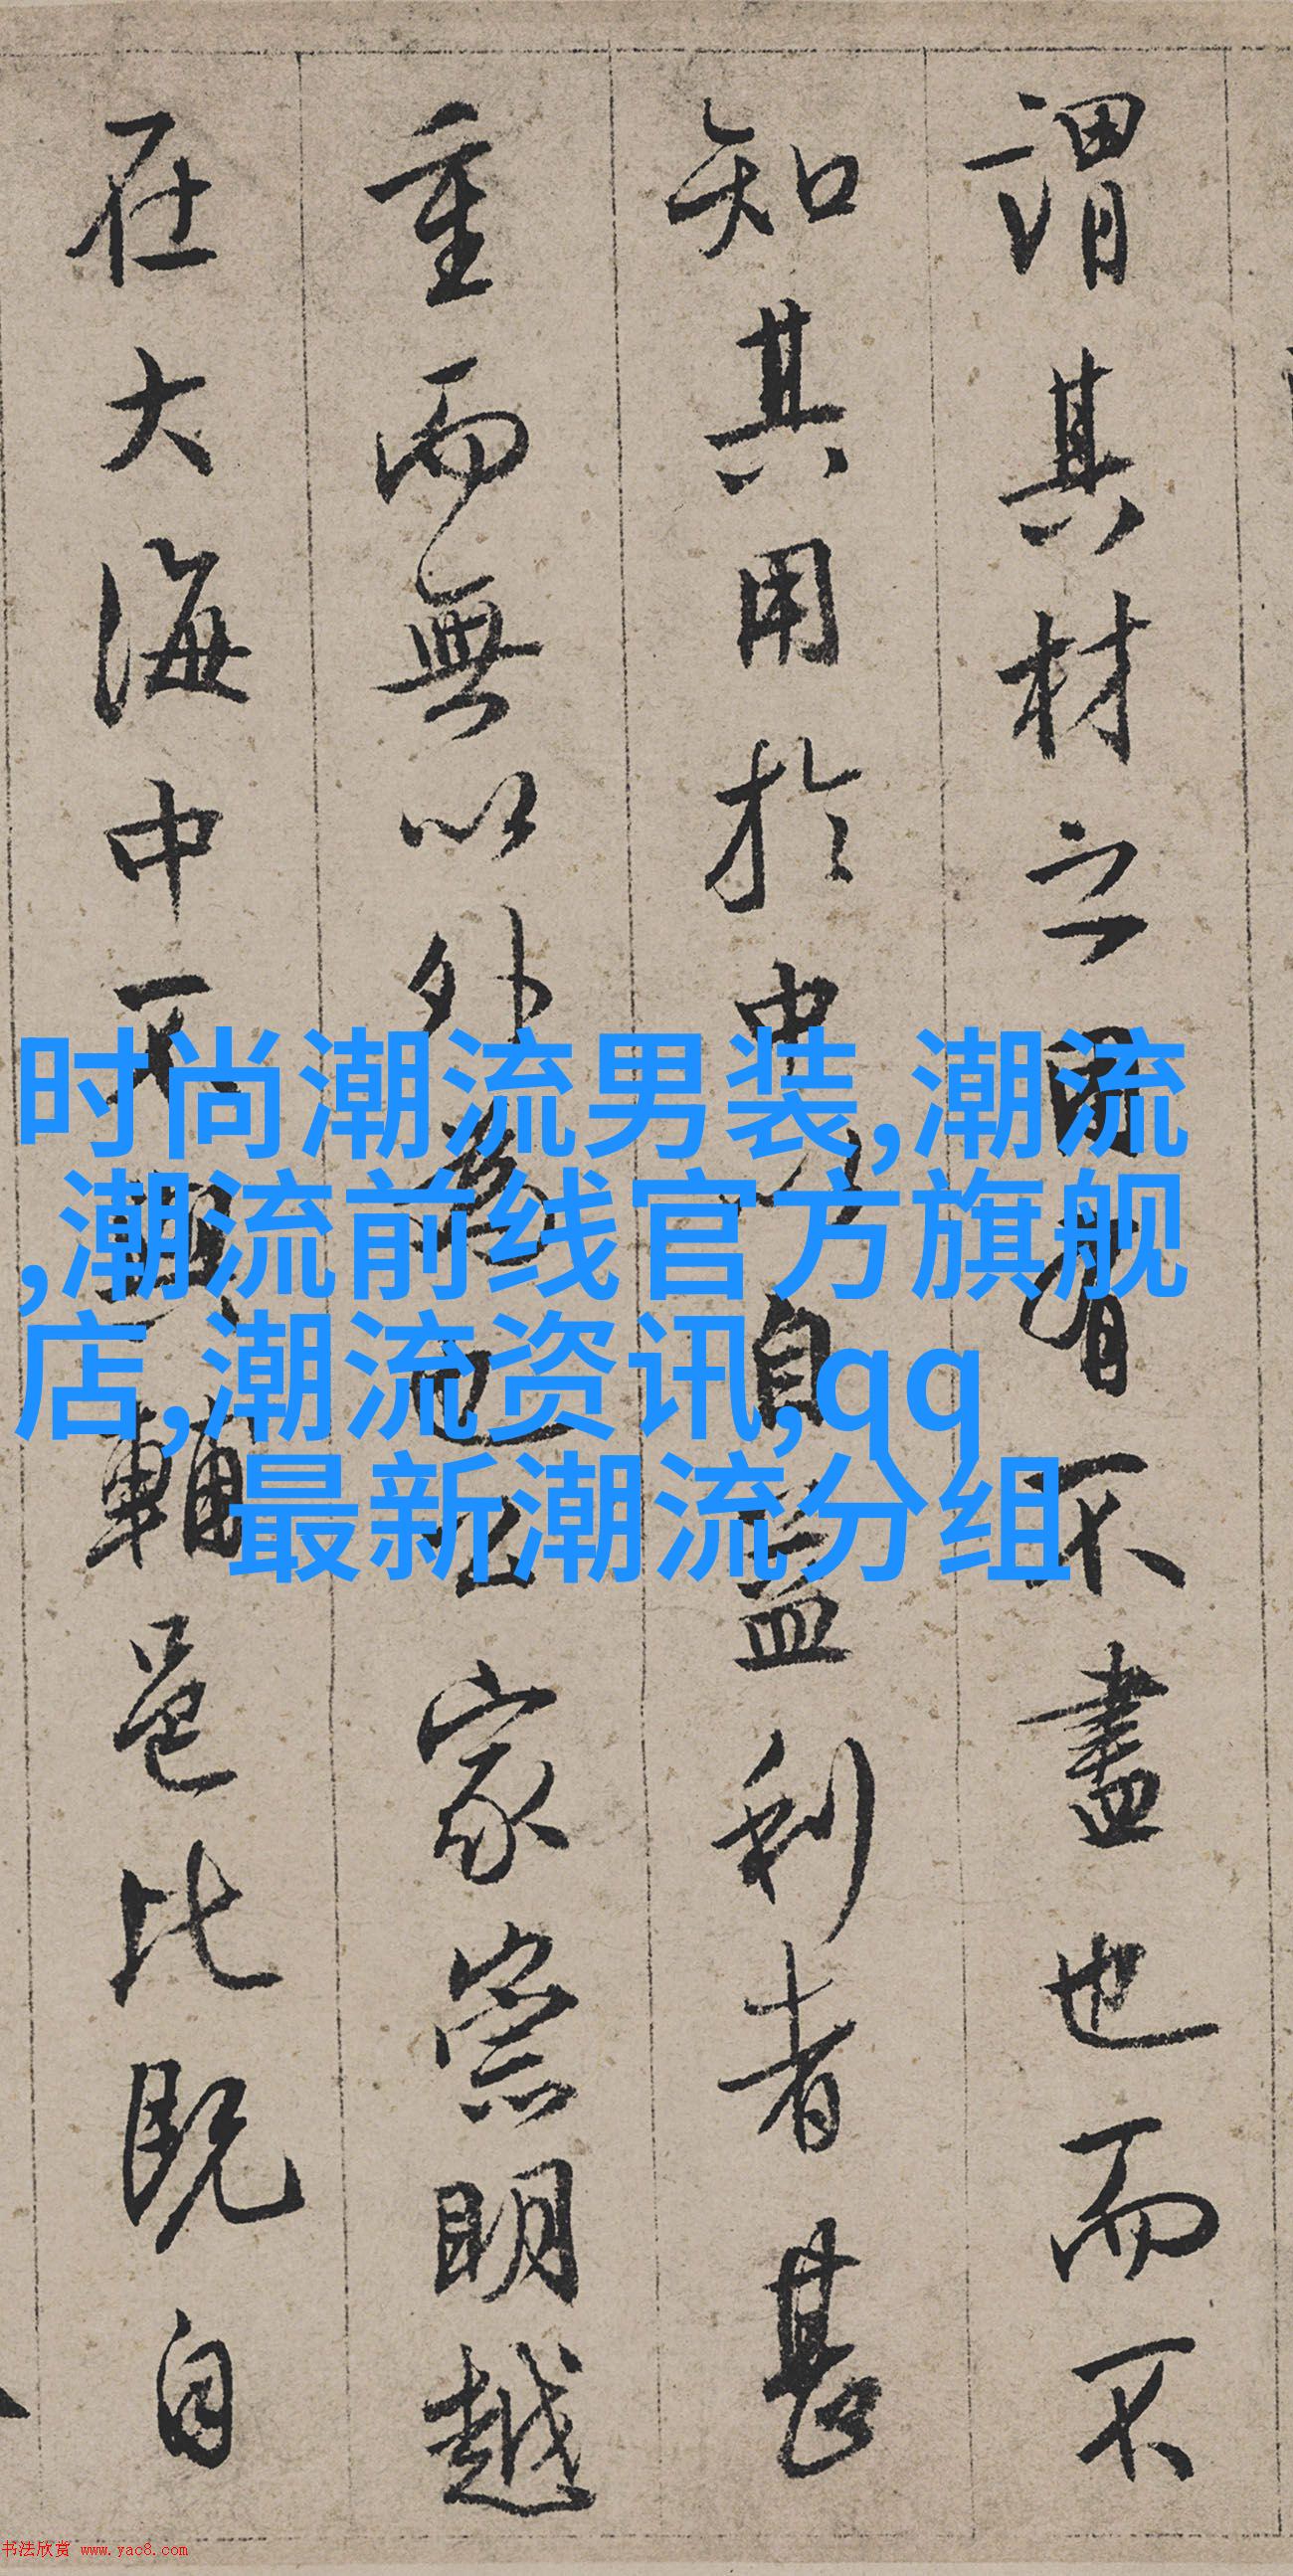 謂其材之用有不盡也而不
知其用於中以自益利者甚
重而無以外為也以家崇明越
在大海中不與輔邑比既自
时尚潮流男装,潮流
,潮流前线官方旗舰
店,潮流资讯,qq
最新潮流分组
书法欣赏 www.yac8.com